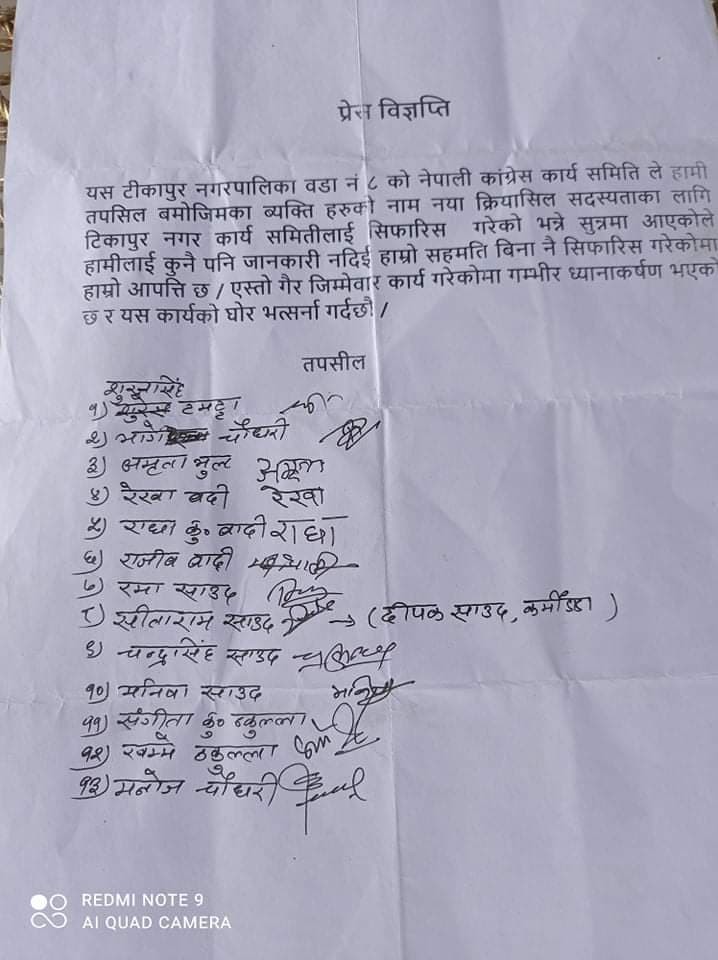 प्रेस विज्ञप्ति
यस टीकापुर नगरपालिका वडा नं ८ को नेपाली कांग्रेस कार्य समिति ले हामी
तपसिल बमोजिमका ब्यक्ति हरुको नाम नया क्रियासिल सदस्यताका लागि
टिकापुर नगर कार्य समितीलाई सिफारिस गरेको भन्ने सुत्रमा आएकोले
हामीलाई कुनै पनि जानकारी नदिई हाम्रो सहमति बिना नै सिफारिस गरेकोमा
हाम्रो आपत्ति छ / एस्तो गैर जिम्मेवार कार्य गरेकोमा गम्भीर ध्यानाकर्षण भएको
छ र यस कार्यको घोर भत्सर्ना गर्दछौ /
तपसील
१) टमट्टा
२) चौधरी
३) अमृता भुल अमृता
४) रेखा वदी रेखा
५) राधा कु॰ वादी राधा
६) राजीव वादी
७) रमा साउद
८) सीताराम साउद → (दीपक साउद, )
९) चन्द्रसिंह साउद
१०) मनिषा साउद
११) संगीता कु॰ ठकुल्ला
१२) ठकुल्ला
१३) मनोज चौधरी
REDMI NOTE 9
AI QUAD CAMERA